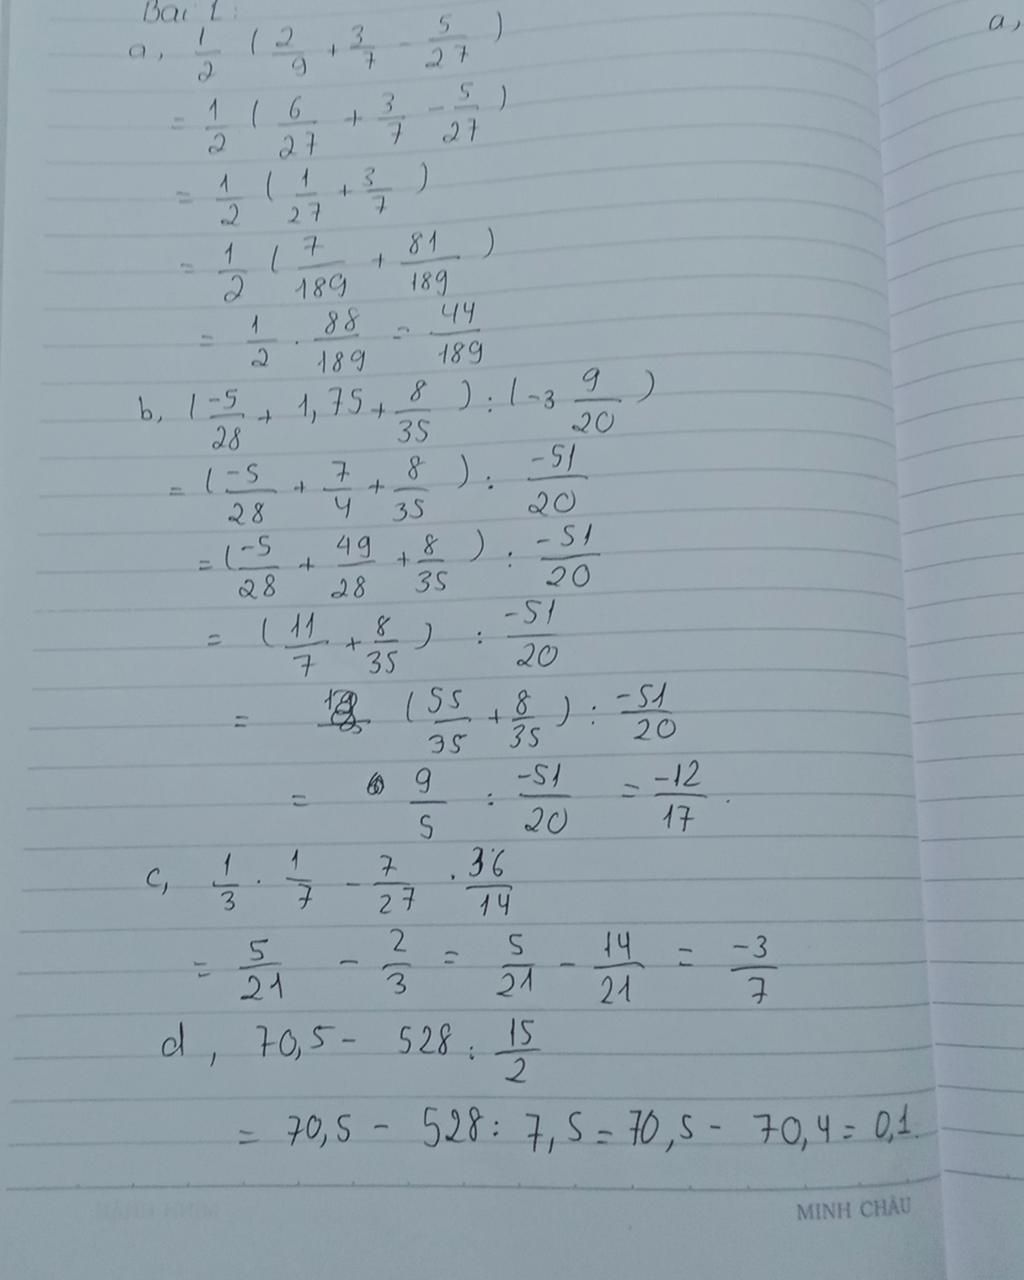 Bài 1:
a, 1/2 ( 2/9 + 3/7 - 5/27 )
= 1/2 ( 6/27 + 3/7 - 5/27 )
= 1/2 ( 1/27 + 3/7 )
= 1/2 ( 7/189 + 81/189 )
= 1/2 . 88/189 = 44/189
b, ( -5/28 + 1,75 + 8/35 ) : ( -3 9/20 )
= ( -5/28 + 7/4 + 8/35 ) : -51/20
= ( -5/28 + 49/28 + 8/35 ) : -51/20
= ( 11/7 + 8/35 ) : -51/20
= ( 55/35 + 8/35 ) : -51/20
= 9/5 : -51/20 = -12/17 .
c, 1/3 . 1/7 - 7/27 . 36/14
= 5/21 - 2/3 = 5/21 - 14/21 = -3/7
d, 70,5 - 528 : 15/2
= 70,5 - 528 : 7,5 = 70,5 - 70,4 = 0,1.
MINH CHÂU
a,